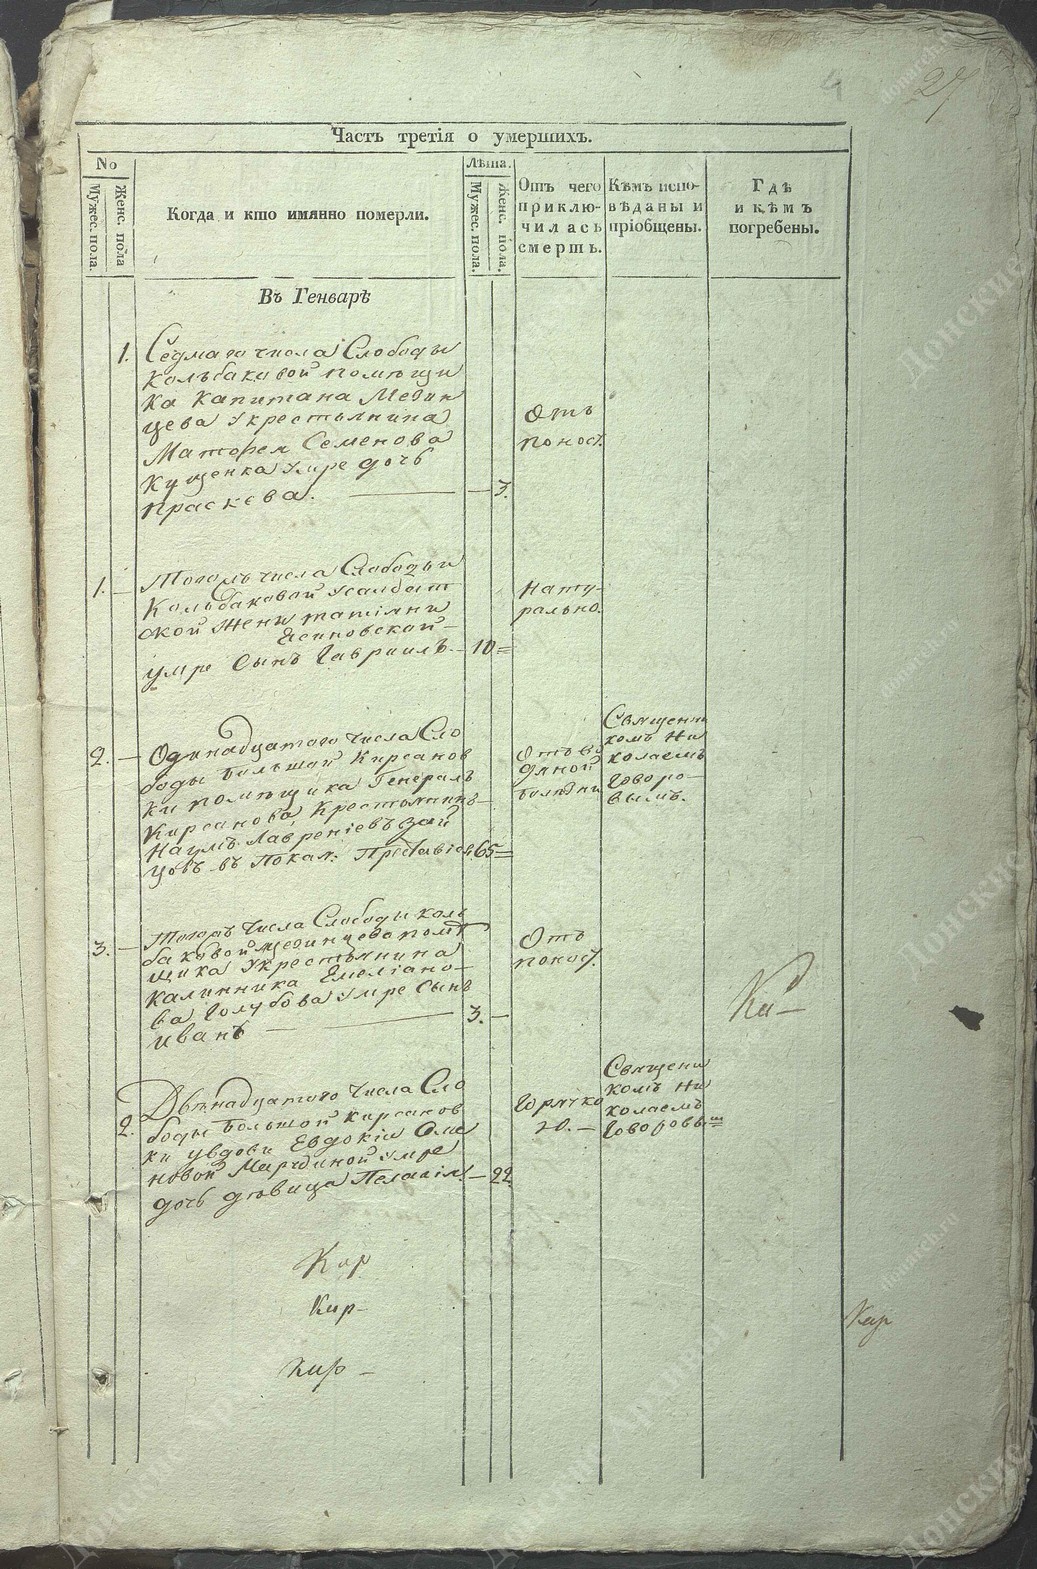 27
Часть третія о умершихъ.
No
Мужес. пола.
Женс. пола
Когда и кто имянно померли.
Лѣта.
Мужес. пола.
Женс. пола.
Отъ чего
приклю-
чилась
смерть.
Кѣмъ испо-
вѣданы и
пріобщены.
Гдѣ
и кѣмъ
погребены.
Въ Генварѣ
1. Седмаго числа Слободы
Колбаковой помѣщи
ка капитана Медин
цева у крестьянина
Матфея Семенова
Куценка умре дочь
праскева. — 3.
Отъ
понос.
1. — Тогожъ числа Слободы
Колбаковой у салдат
ской жени татіяни
Ясиновской —
умре сынъ Гавриилъ. — 10 =
Нату-
рально.
2. — Одинадцатого числа Сло
боды большой Кирсанов
ки помѣщика Генералъ
Кирсанова крестьянинъ
Наумъ Лавреніевъ Зай
цовъ въ Покая: Преставися 65 =
отъ во
дяной
болѣзни
Священи
комъ Ни
колаемъ
Говоро-
вымъ.
3. — Тогожъ числа Слободы кол
баковой Мединцева помѣ
щика у крестьянина
Калинника Емеліано-
ва Голубова умре сынъ
иванъ — 3. —
Отъ
понос.
2. Двѣнадцатого числа Сло
боды большой кирсанов
ки у вдови Евдокіи Симе
новой Марчиной умре
дочь дѣвица Пелагія. — 22.
горячко
ю. —
Священи
комъ Ни
колаемъ
Говоровымъ
Кир
Кир-
Кир —
Кир
донские
Архивы
donarch.ru